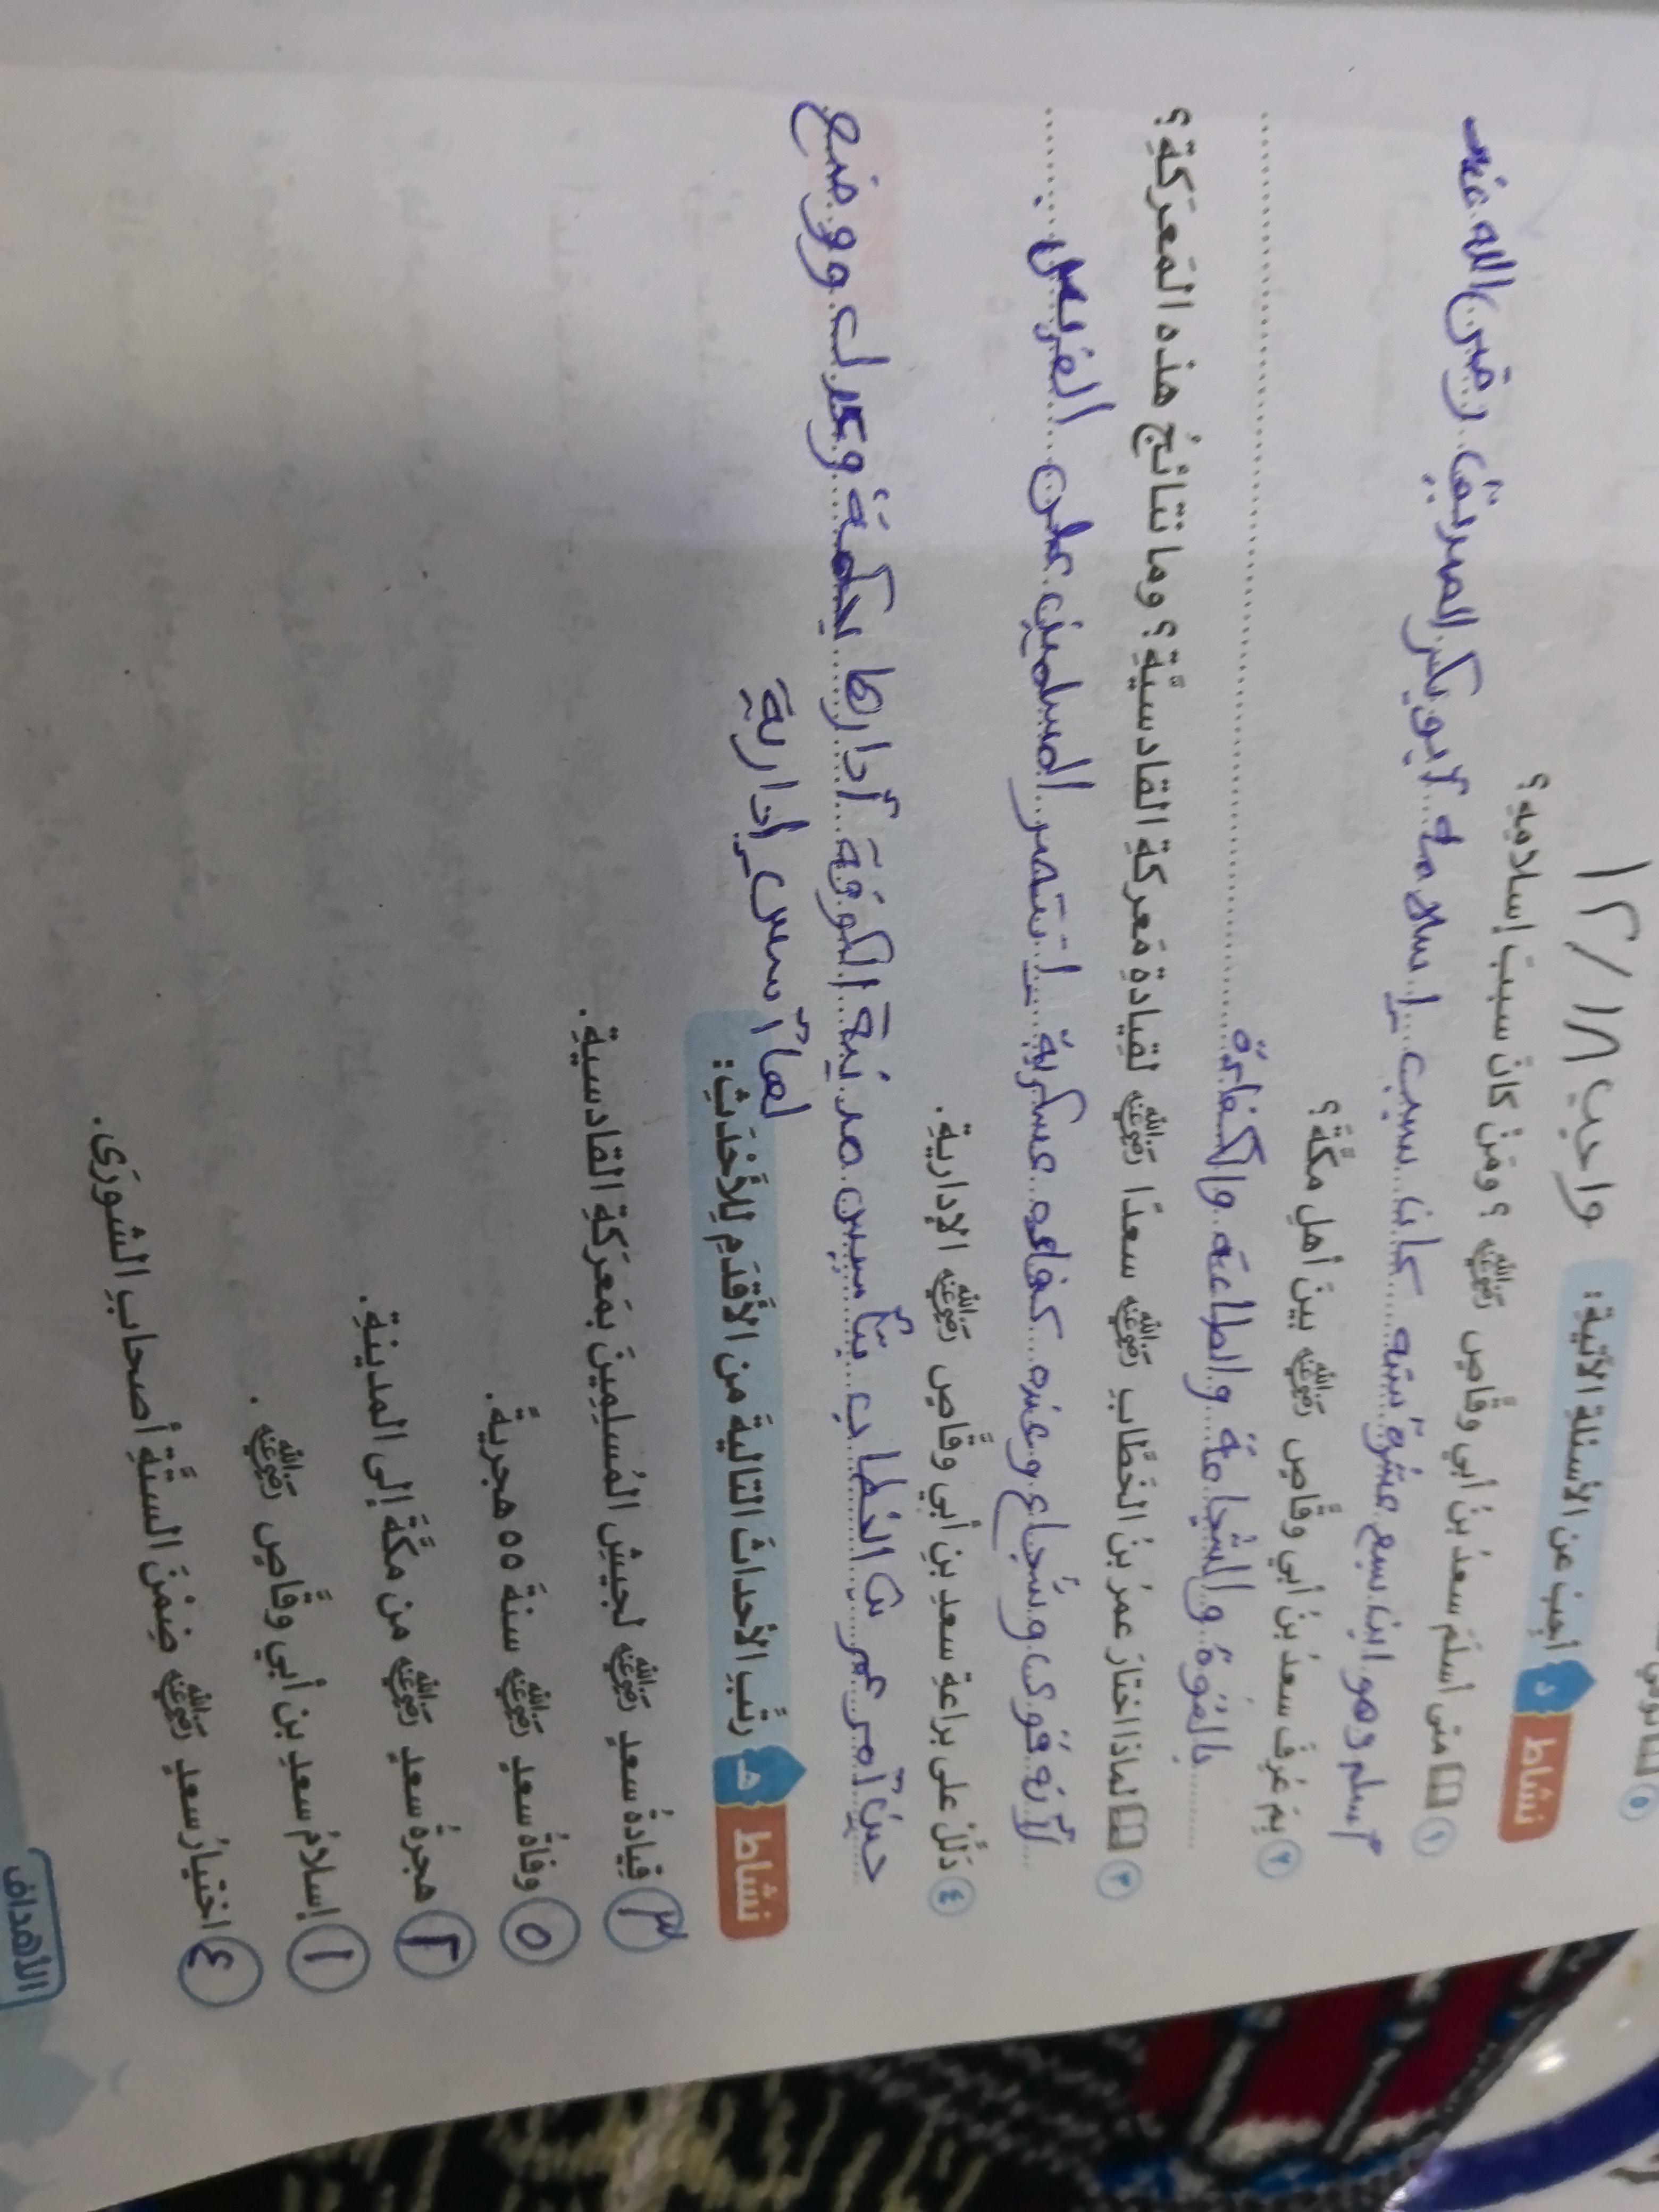 ٥
واجب ١٢/١٨
نشاط د أجب عن الأسئلة الآتية:
١ متى أسلم سعدُ بنُ أبي وقَّاصٍ رَضِيَ اللهُ عَنْهُ ؟ ومَنْ كانَ سببَ إسلامِهِ؟
أسلم وهو ابن سبع عشرة سنه كان سبب إسلامه ابو بكر الصديق رضى الله عنه
٢ بِمَ عُرِفَ سعدُ بنُ أبي وقَّاصٍ رَضِيَ اللهُ عَنْهُ بينَ أهلِ مكَّةَ؟
بالقوة والشجاعة والطاعة والكفاءة
٣ لماذا اختارَ عمرُ بنُ الخطَّابِ رَضِيَ اللهُ عَنْهُ سعدًا رَضِيَ اللهُ عَنْهُ لقيادةِ مَعركةِ القادسيَّةِ؟ وما نتائجُ هذه المَعرَكَةِ؟
لأنه قوى وشجاع وعنده كفاءه عسكرية إنتصر المسلمين على الفرس
٤ دَلِّلْ على براعةِ سعدِ بنِ أبي وقَّاصٍ رَضِيَ اللهُ عَنْهُ الإداريةِ.
حين أمر عمر بن الخطاب بتأسيس مدينة الكوفة أدارها بحكمة وعدل ووضع
لها أسس إدارية
نشاط هـ رتِّبِ الأحداثَ التاليةَ من الأَقْدَمِ لِلأَحْدَثِ:
٣ قيادةُ سعدٍ رَضِيَ اللهُ عَنْهُ لجيشِ المُسلِمِينَ بمَعرَكَةِ القادسيةِ.
٥ وفاةُ سعدٍ رَضِيَ اللهُ عَنْهُ سنةَ ٥٥ هجريةً.
٢ هجرةُ سعدٍ رَضِيَ اللهُ عَنْهُ من مكَّةَ إلى المدينةِ.
١ إسلامُ سعدِ بن أبي وقَّاصٍ رَضِيَ اللهُ عَنْهُ.
٤ اختيارُ سعدٍ رَضِيَ اللهُ عَنْهُ ضِمْنَ الستَّةِ أصحابِ الشورَى.
الأهداف